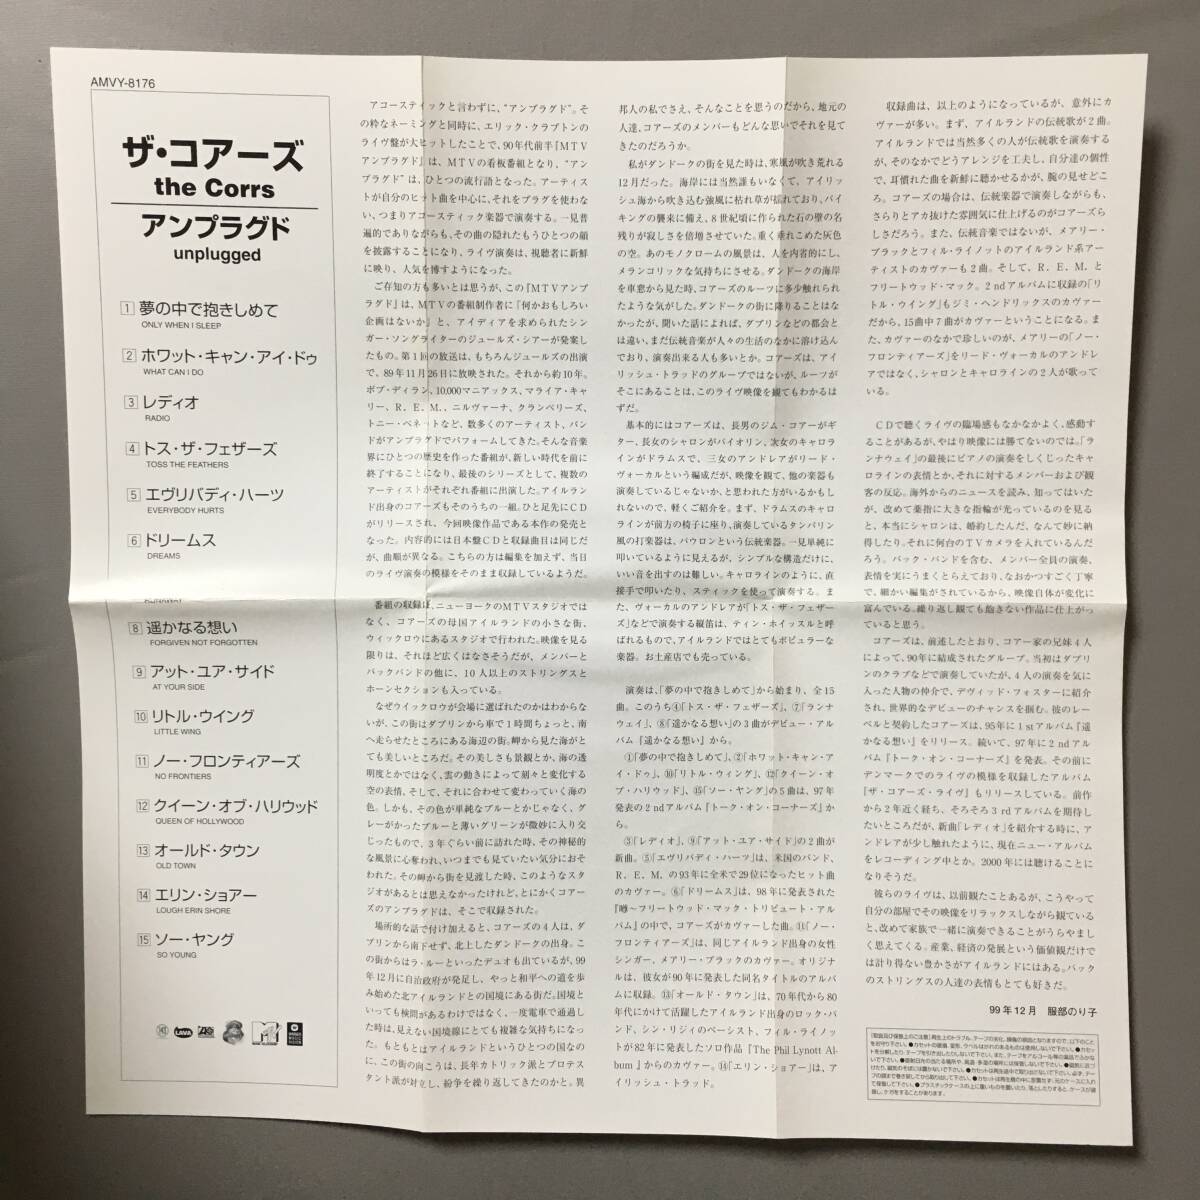 AMVY-8176
ザ・コアーズ
the Corrs
アンプラグド
unplugged
1 夢の中で抱きしめて
ONLY WHEN I SLEEP
2 ホワット・キャン・アイ・ドゥ
WHAT CAN I DO
3 レディオ
RADIO
4 トス・ザ・フェザーズ
TOSS THE FEATHERS
5 エヴリバディ・ハーツ
EVERYBODY HURTS
6 ドリームス
DREAMS
RUNAWAY
8 遥かなる想い
FORGIVEN NOT FORGOTTEN
9 アット・ユア・サイド
AT YOUR SIDE
10 リトル・ウイング
LITTLE WING
11 ノー・フロンティアーズ
NO FRONTIERS
12 クイーン・オブ・ハリウッド
QUEEN OF HOLLYWOOD
13 オールド・タウン
OLD TOWN
14 エリン・ショアー
LOUGH ERIN SHORE
15 ソー・ヤング
SO YOUNG
LAVA
MTV
アコースティックと言わずに、“アンプラグド”。そ
の粋なネーミングと同時に、エリック・クラプトンの
ライヴ盤が大ヒットしたことで、90年代前半『MTV
アンプラグド』は、MTVの看板番組となり、“アン
プラグド”は、ひとつの流行語となった。アーティス
トが自分のヒット曲を中心に、それをプラグを使わな
い、つまりアコースティック楽器で演奏する。一見普
遍的でありながらも、その曲の隠れたもうひとつの顔
を披露することになり、ライヴ演奏は、視聴者に新鮮
に映り、人気を博すようになった。
ご存知の方も多いとは思うが、この『MTVアンプ
ラグド』は、MTVの番組制作者に「何かおもしろい
企画はないか」と、アイディアを求められたシン
ガー・ソングライターのジュールズ・シアーが発案し
たもの。第1回の放送は、もちろんジュールズの出演
で、89年11月26日に放映された。それから約10年。
ボブ・ディラン、10,000マニアックス、マライア・キャ
リー、R.E.M.、ニルヴァーナ、クランベリーズ、
トニー・ベネットなど、数多くのアーティスト、バン
ドがアンプラグドでパフォームしてきた。そんな音楽
界にひとつの歴史を作った番組が、新しい時代を前に
終了することになり、最後のシリーズとして、複数の
アーティストがそれぞれ番組に出演した。アイルラン
ド出身のコアーズもそのうちの一組。ひと足先にCD
がリリースされ、今回映像作品である本作の発売と
なった。内容的には日本盤CDと収録曲目は同じだ
が、曲順が異なる。こちらの方は編集を加えず、当日
のライヴ演奏の模様をそのまま収録しているようだ。
番組の収録は、ニューヨークのMTVスタジオでは
なく、コアーズの母国アイルランドの小さな街、
ウィックロウにあるスタジオで行われた。映像を見る
限りは、それほど広くはなさそうだが、メンバーと
バックバンドの他に、10人以上のストリングスと
ホーンセクションも入っている。
なぜウイックロウが会場に選ばれたのかはわからな
いが、この街はダブリンから車で1時間ちょっと、南
へ走らせたところにある海辺の街。岬から見た海がと
ても美しいところだ。その美しさも景観とか、海の透
明度とかではなく、雲の動きによって刻々と変化する
空の表情、そして、それに合わせて変わっていく海の
色。しかも、その色が単純なブルーとかじゃなく、グ
レーがかったブルーと薄いグリーンが微妙に入り交
じったもので、3年ぐらい前に訪れた時、その神秘的
な風景に心奪われ、いつまでも見ていたい気分におそ
われた。その岬から街を見渡した時、このようなスタ
ジオがあるとは思えなかったけれど、とにかくコアー
ズのアンプラグドは、そこで収録された。
場所的な話で付け加えると、コアーズの4人は、ダ
ブリンから南下せず、北上したダンドークの出身。こ
の街からはラ・ルーといったデュオも出ているが、99
年12月に自治政府が発足し、やっと和平への道を歩
み始めた北アイルランドとの国境にある街だ。国境と
いっても検問があるわけではなく、一度電車で通過し
た時は、見えない国境線にとても複雑な気持ちになっ
た。もともとはアイルランドというひとつの国なの
に、この街の向こうは、長年カトリック派とプロテス
タント派が対立し、紛争を繰り返してきたのかと。異
邦人の私でさえ、そんなことを思うのだから、地元の
人達、コアーズのメンバーもどんな思いでそれを見て
きたのだろうか。
私がダンドークの街を見た時は、寒風が吹き荒れる
12月だった。海岸には当然誰もいなくて、アイリッ
シュ海から吹き込む強風に枯れ草が揺れており、バイ
キングの襲来に備え、8世紀頃に作られた石の壁の名
残りが寂しさを倍増させていた。重く垂れこめた灰色
の空。あのモノクロームの風景は、人を内省的にし、
メランコリックな気持ちにさせる。ダンドークの海岸
を車窓から見た時、コアーズのルーツに多少触れられ
たような気がした。ダンドークの街に降りることはな
かったが、聞いた話によれば、ダブリンなどの都会と
は違い、まだ伝統音楽が人々の生活のなかに溶け込ん
でおり、演奏出来る人も多いとか。コアーズは、アイ
リッシュ・トラッドのグループではないが、ルーツが
そこにあることは、このライヴ映像を観てもわかるは
ずだ。
基本的にはコアーズは、長男のジム・コアーがギ
ター、長女のシャロンがバイオリン、次女のキャロラ
インがドラムスで、三女のアンドレアがリード・
ヴォーカルという編成だが、映像を観て、他の楽器も
演奏しているじゃないか、と思われた方がいるかもし
れないので、軽くご紹介を。まず、ドラムスのキャロ
ラインが前方の椅子に座り、演奏しているタンバリン
風の打楽器は、バウロンという伝統楽器。一見単純に
叩いているように見えるが、シンプルな構造だけに、
いい音を出すのは難しい。キャロラインのように、直
接手で叩いたり、スティックを使って演奏する。ま
た、ヴォーカルのアンドレアが「トス・ザ・フェザー
ズ」などで演奏する縦笛は、ティン・ホイッスルと呼
ばれるもので、アイルランドではとてもポピュラーな
楽器。お土産店でも売っている。
演奏は、「夢の中で抱きしめて」から始まり、全15
曲。このうち④「トス・ザ・フェザーズ」、⑦「ランナ
ウェイ」、⑧「遥かなる想い」の3曲がデビュー・アル
バム『遥かなる想い』から。
①「夢の中で抱きしめて」、②「ホワット・キャン・ア
イ・ドゥ」、⑩「リトル・ウィング」、⑫「クイーン・オ
ブ・ハリウッド」、⑮「ソー・ヤング」の5曲は、97年
発表の2ndアルバム『トーク・オン・コーナーズ』か
ら。
③「レディオ」、⑨「アット・ユア・サイド」の2曲が
新曲。⑤「エヴリバディ・ハーツ」は、米国のバンド、
R.E.M.の93年に全米で29位になったヒット曲
のカヴァー。⑥「ドリームス」は、98年に発表された
『噂〜フリートウッド・マック・トリビュート・アル
バム』の中で、コアーズがカヴァーした曲。⑪「ノー・
フロンティアーズ」は、同じアイルランド出身の女性
シンガー、メアリー・ブラックのカヴァー。オリジナ
ルは、彼女が90年に発表した同名タイトルのアルバ
ムに収録。⑬「オールド・タウン」は、70年代から80
年代にかけて活躍したアイルランド出身のロック・バ
ンド、シン・リジィのベーシスト、フィル・ライノッ
トが82年に発表したソロ作品『The Phil Lynott Al-
bum』からのカヴァー。⑭「エリン・ショアー」は、ア
イリッシュ・トラッド。
収録曲は、以上のようになっているが、意外にカ
ヴァーが多い。まず、アイルランドの伝統歌が2曲。
アイルランドでは当然多くの人が伝統歌を演奏する
が、そのなかでどうアレンジを工夫し、自分達の個性
で、耳慣れた曲を新鮮に聴かせるかが、腕の見せどこ
ろ。コアーズの場合は、伝統楽器で演奏しながらも、
さらりとアカ抜けた雰囲気に仕上げるのがコアーズら
しさだろう。また、伝統音楽ではないが、メアリー・
ブラックとフィル・ライノットのアイルランド系アー
ティストのカヴァーも2曲。そして、R.E.M.と
フリートウッド・マック。2ndアルバムに収録の「リ
トル・ウイング」もジミ・ヘンドリックスのカヴァー
だから、15曲中7曲がカヴァーということになる。ま
た、カヴァーのなかで珍しいのが、メアリーの「ノー・
フロンティアーズ」をリード・ヴォーカルのアンドレ
アではなく、シャロンとキャロラインの2人が歌って
いる。
CDで聴くライヴの臨場感もなかなかよく、感動す
ることがあるが、やはり映像には勝てないのでは。「ラ
ンナウェイ」の最後にピアノの演奏をしくじったキャ
ロラインの表情とか、それに対するメンバーおよび観
客の反応。海外からのニュースを読み、知ってはいた
が、改めて薬指に大きな指輪が光っているのを見る
と、本当にシャロンは、婚約したんだ、なんて妙に納
得したり。それに何台のTVカメラを入れているんだ
ろう。バック・バンドを含む、メンバー全員の演奏、
表情を実にうまくとらえており、なおかつすごく丁寧
で、細かい編集がされているから、映像自体が変化に
富んでいる。繰り返し観ても飽きない作品に仕上がっ
ていると思う。
コアーズは、前述したとおり、コアー家の兄妹4人
によって、90年に結成されたグループ。当初はダブリ
ンのクラブなどで演奏していたが、4人の演奏を気に
入った人物の仲介で、デヴィッド・フォスターに紹介
され、世界的なデビューのチャンスを掴む。彼のレー
ベルと契約したコアーズは、95年に1stアルバム『遥
かなる想い』をリリース。続いて、97年に2ndアル
バム『トーク・オン・コーナーズ』を発表。その前に
デンマークでのライヴの模様を収録したアルバム
『ザ・コアーズ・ライヴ』もリリースしている。前作
から2年近く経ち、そろそろ3rdアルバムを期待
したいところだが、新曲「レディオ」を紹介する時に、ア
ンドレアが少し触れたように、現在ニュー・アルバム
をレコーディング中とか。2000年には聴けることに
なりそうだ。
彼らのライヴは、以前観たことあるが、こうやって
自分の部屋でその映像をリラックスしながら観ている
と、改めて家族で一緒に演奏できることがうらやまし
く思えてくる。産業、経済の発展という価値観だけで
は計り得ない豊かさがアイルランドにはある。バック
のストリングスの人達の表情もとても好きだ。
99年12月 服部のり子